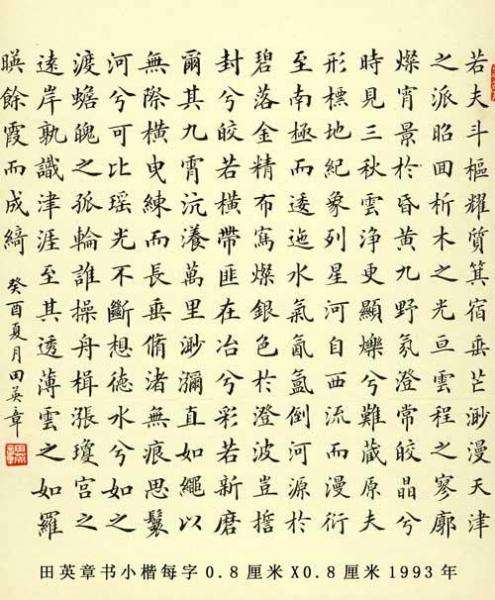 若夫斗樞耀質箕宿垂芒渺漫天津
之派昭回析木之光亘雲程之寥廓
燦宵景於昏黄九野氛澄常皎晶兮
時見三秋雲浄更顯爍兮難藏原夫
形標地紀象列星河自西流而漫衍
至南極而逶迤水氣氤氳倒河源於
碧落金精布寫燦銀色於澄波豈
封兮皎若橫帶匪在冶兮彩若新磨
爾其九霄沆瀁萬里渺瀰直如繩以
無際橫曳練而長垂脩渚無痕思鬟
河兮可比瑶光不斷想德水兮如之
渡蟾魄之孤輪誰操舟楫漲瓊宫之
遠岸孰識津涯至其透薄雲之如羅
暎餘霞而成綺
癸酉夏月田英章
田英章书小楷每字0.8厘米X0.8厘米1993年